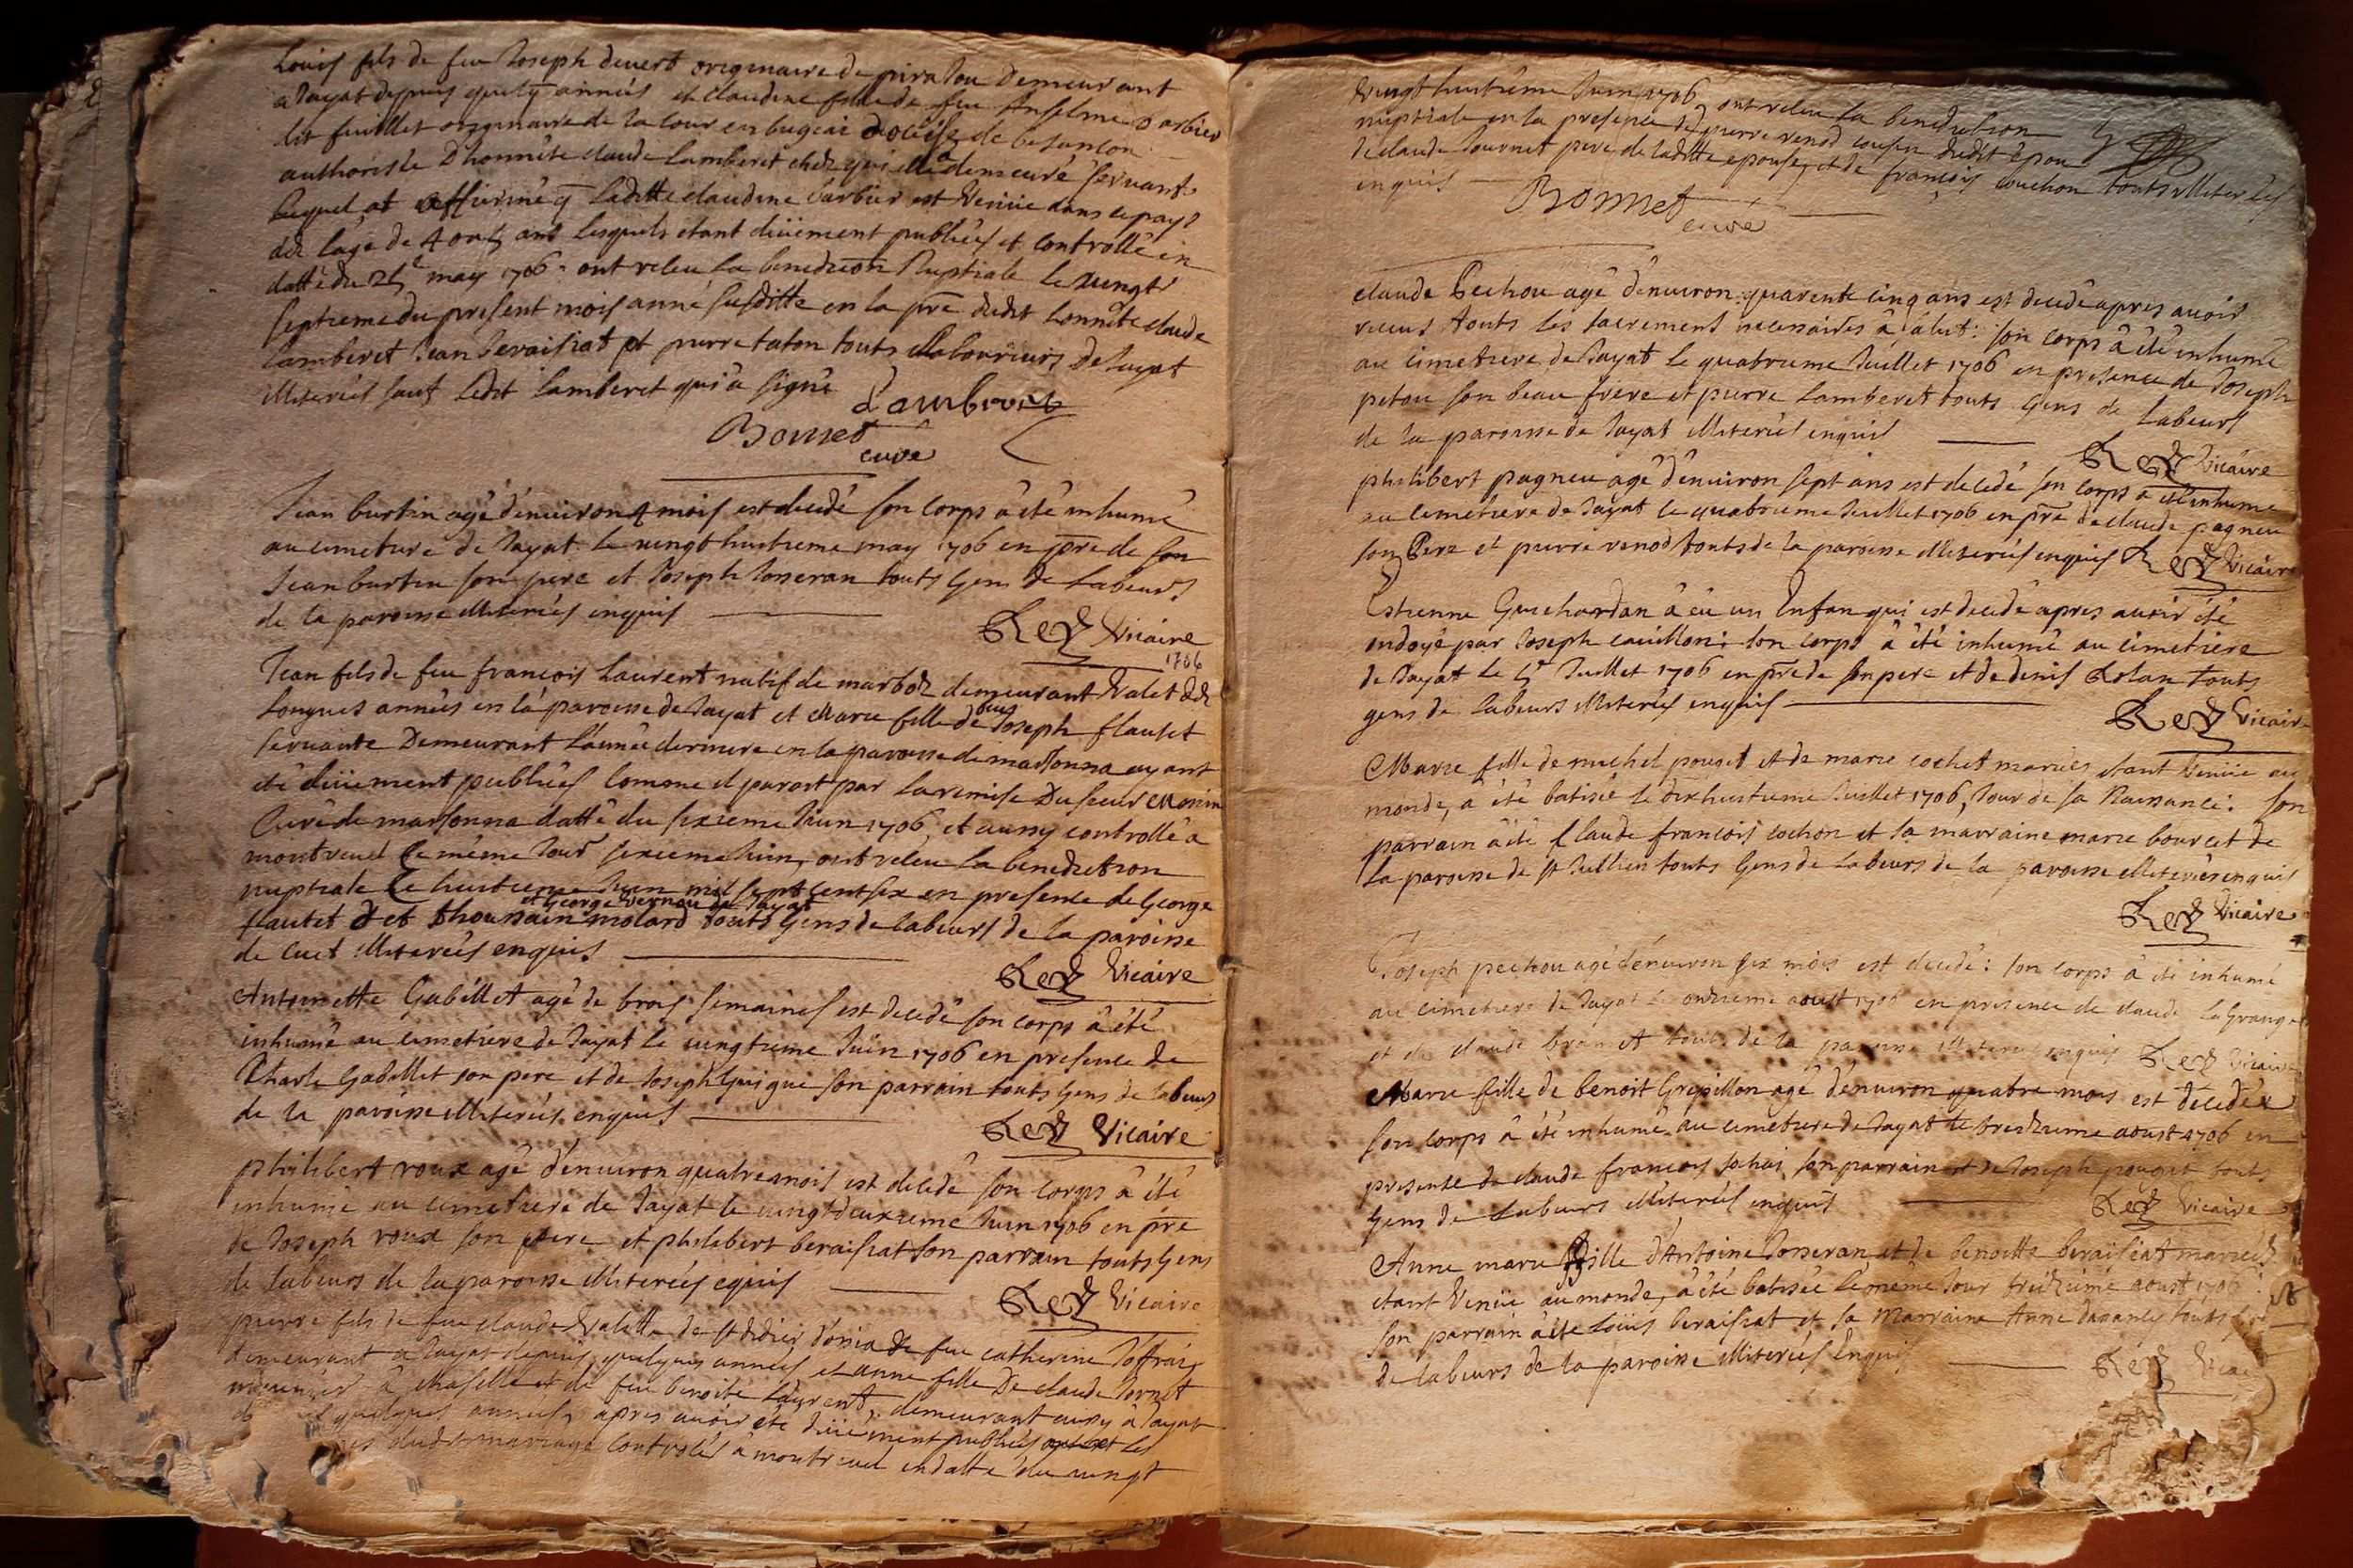 Louis fils de feu Joseph devert originaire de pirajou Demeurant
a Jayat depuis quelq̄ années et claudine fille de feu Anselme Barbier
dit fuillet originaire de la tour en bugeai diocèse de besançon
authorisée D'honnête claude Lamberet chez qui elle a demeuré servante
lequel at affirmé q̄ laditte claudine barbier est venüe dans ce pays
dez lage de 4 ou 5 ans lesquels étant düement publiés et controllé en
datte du 25e may 1706. ont receu la benediction Nuptiale le vingt
septieme du present mois anné susditte en la pre dudt honnête claude
lamberet Jean beraisiat et pierre taton touts Laboureurs de Jayat
illiterés sauf ledt lamberet qui a signé
Lamberet
Bonnet
curé
Jean burtin agé d'enuiron 4 mois est decedé son corps â été inhumé
au cimetiere de Jayat le uingt huitieme may 1706 en pre de son
Jean burtin son pere et Joseph Josseran touts Gens de Labeurs
de la paroisse illiterés enquis
Rey Vicaire
1706
Jean fils de feu françois Laurent natif de marboz demeurant Valet dez
Longues années en la paroisse de Jayat et Marie fille de feu Joseph flautet
servante Demeurant l'année derniere en la paroisse de marsonna ayant
été düement publiés comme il paroit par la remise Du sieur Monin
Curé de marsonna datté du sixieme Juin 1706, et aussy controllé a
montreuel le même Jour sixieme Juin, ont receu la benediction
nuptiale Le huitieme Juin mil sept cent six en presence de George
et George vernou de Jayat
flautet d et thoussain molard touts Gens de labeurs de la paroisse
de cuet illiterés enquis
Rey Vicaire
Antoinette Gabillet agé de trois semaines est decedé son corps â été
inhumé au cimetiere de Jayat le uingtieme Juin 1706 en presence de
Charle Gabillet son pere et de Joseph Guigue son parrain touts Gens de labeurs
de la paroisse illiterés enquis
Rey Vicaire
philibert roux agé d'enuiron quatre mois est decedé son corps â été
inhumé au cimetiere de Jayat le uingt deuxieme Juin 1706 en pre
de Joseph roux son pere et philibert beraisiat son parrain touts Gens
de labeurs de la paroisse illiterés equis
Rey Vicaire
pierre fils de feu claude Valette de St didier d'ossia de feu catherine Joffray
demeurant a Jayat depuis quelques années, et anne fille De claude Jornet
meunier â Maselle et de feu benoite Laurent, demeurant aussy â Jayat
quelques années, apres auoir été düement publiés et les
dudt mariage controlés â montreuel en datte du uingt
Vingt huitiême Juin 1706 ont receu la benediction
nuptiale en la presence de pierre venod cousin dudit epou
de claude Journet pere de laditte epouse, et de françois couchon touts illiterés
enquis
Bonnet
curé
claude Pechou agé d'enuiron quarente cinq ans est decedé apres auoir
receus touts les sacrement necessaires â salut: son corps â été inhumé
au cimetiere de Jayat le quatrieme Juillet 1706 en presence de Joseph
petou son beau frere et pierre Lamberet touts Gens de Labeurs
de la paroisse de Jayat illiterés enquis
Rey Vicaire
philibert pagneu agé d'enuiron sept ans est decedé son corps a été inhumé
au cimetiere de Jayat le quatrieme Juillet 1706 en pre de claude pagneu
son Pere et pierre venod touts de la paroisse illiterés enquis Rey Vicaire
Estienne Guichardan â eu un Enfan qui est decedé apres auoir été
ondoyé par Joseph cauillon: son corps â été inhumé au cimetiere
de Jayat le 5e Juillet 1706 en pre de son pere et de denis Rolan touts
gens de labeurs illiterés enquis
Rey Vicaire
Marie fille de michel pouget et de marie cochet mariés etant Venüe au
monde, a été batisée le dixhuitieme Juillet 1706, Jour de sa Naissance: son
parrain â été claude françois cochon et sa marraine marie bourcet de
la paroisse de st Jullien touts Gens de labeurs de la paroisse illiterés enquis
Rey Vicaire
Joseph pechou agé d'enuiron six mois est decedé: son corps â été inhumé
au cimetiere de Jayat le onzieme aoust 1706 en presence de claude la Grange
et de claude touts de la paroisse illiterés enquis Rey Vicaire
Marie fille de benoit Grepillon agé d'enuiron quatre mois est decedée
son corps â été inhumé au cimetiere de Jayat le treizieme aoust 1706 en
presence de claude françois sochai son parrain et de Joseph pouget touts
Gens de Labeurs illiterés enquis
Rey Vicaire
Anne marie fille d'Antoine Josseran et de benoitte beraisiat mariés
etant Venüe au monde, â été batisée le même Jour treizieme aoust 1706
son parrain â été Loüis beraisiat et sa Marraine Anne touts
de labeurs de la paroisse illiterés Enquis
Rey Vicai